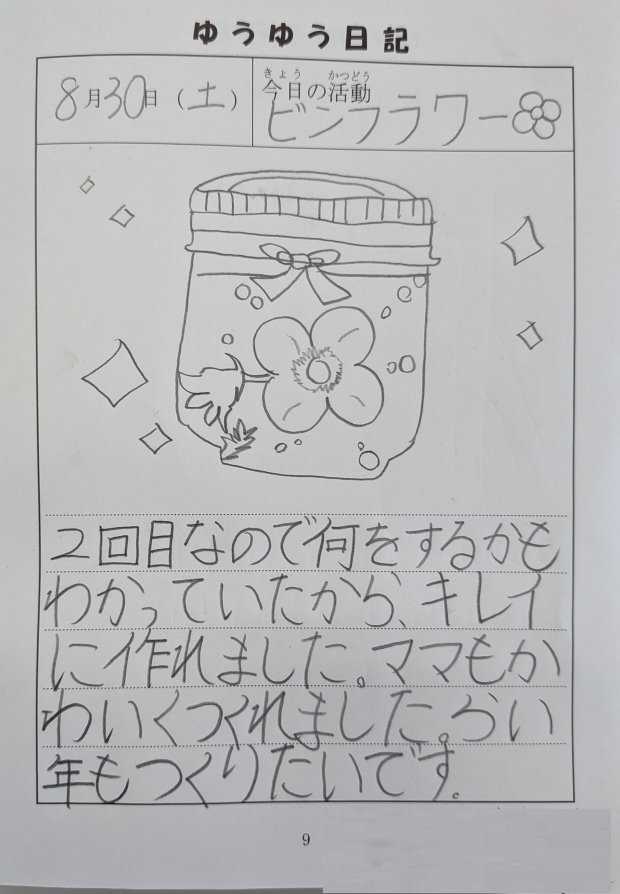 ゆうゆう日記
8月30日(土)
きょう かつどう
今日の活動
ビンフラワー
2回目なので何をするかも
わかっていたから、キレイ
に作れました。ママもか
わいくつくれました。らい
年もつくりたいです。
9